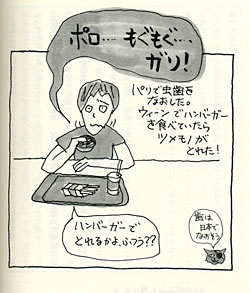 ポロ…‥もぐもぐ…‥
ガリ!
パリで虫歯を
なおした。
ウィーンでハンバーガー
を食べていたら
ツメモノが
とれた!
ハンバーガーで
とれるかよ、ふつう??
歯は
日本で
なおそう